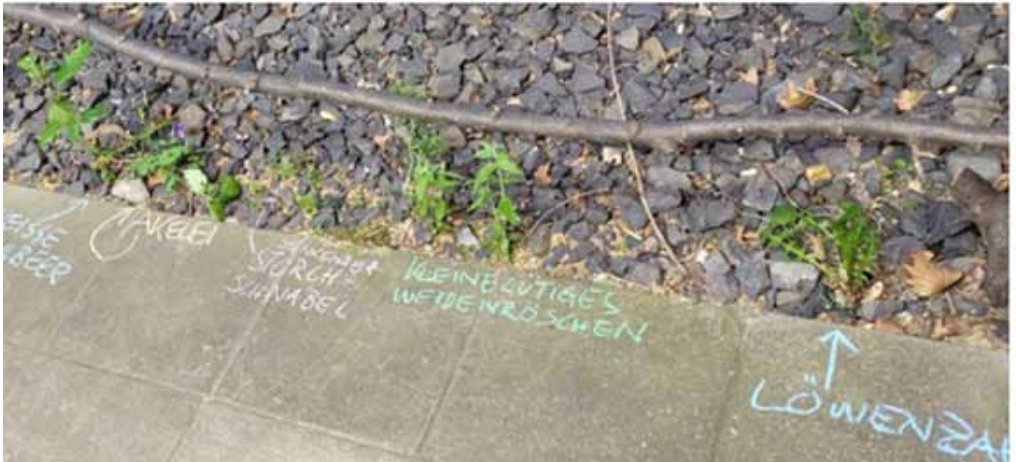 EISSE
AKELEI
STORCH-
SCHNABEL
KLEINBLÜTIGES
WEIDENRÖSCHEN
LÖWENZA